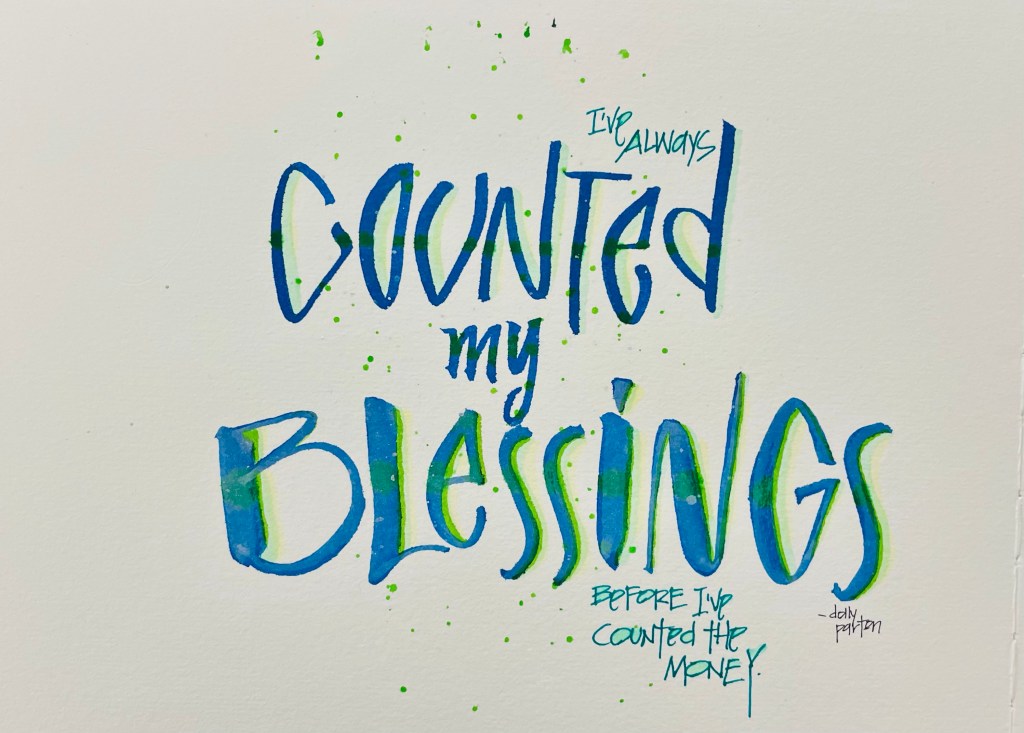 I've
ALWAYS
COUNTED
my
BLESSINGS
BEFORE I'VE
COUNTED THE
MONEY.
- dolly
parton